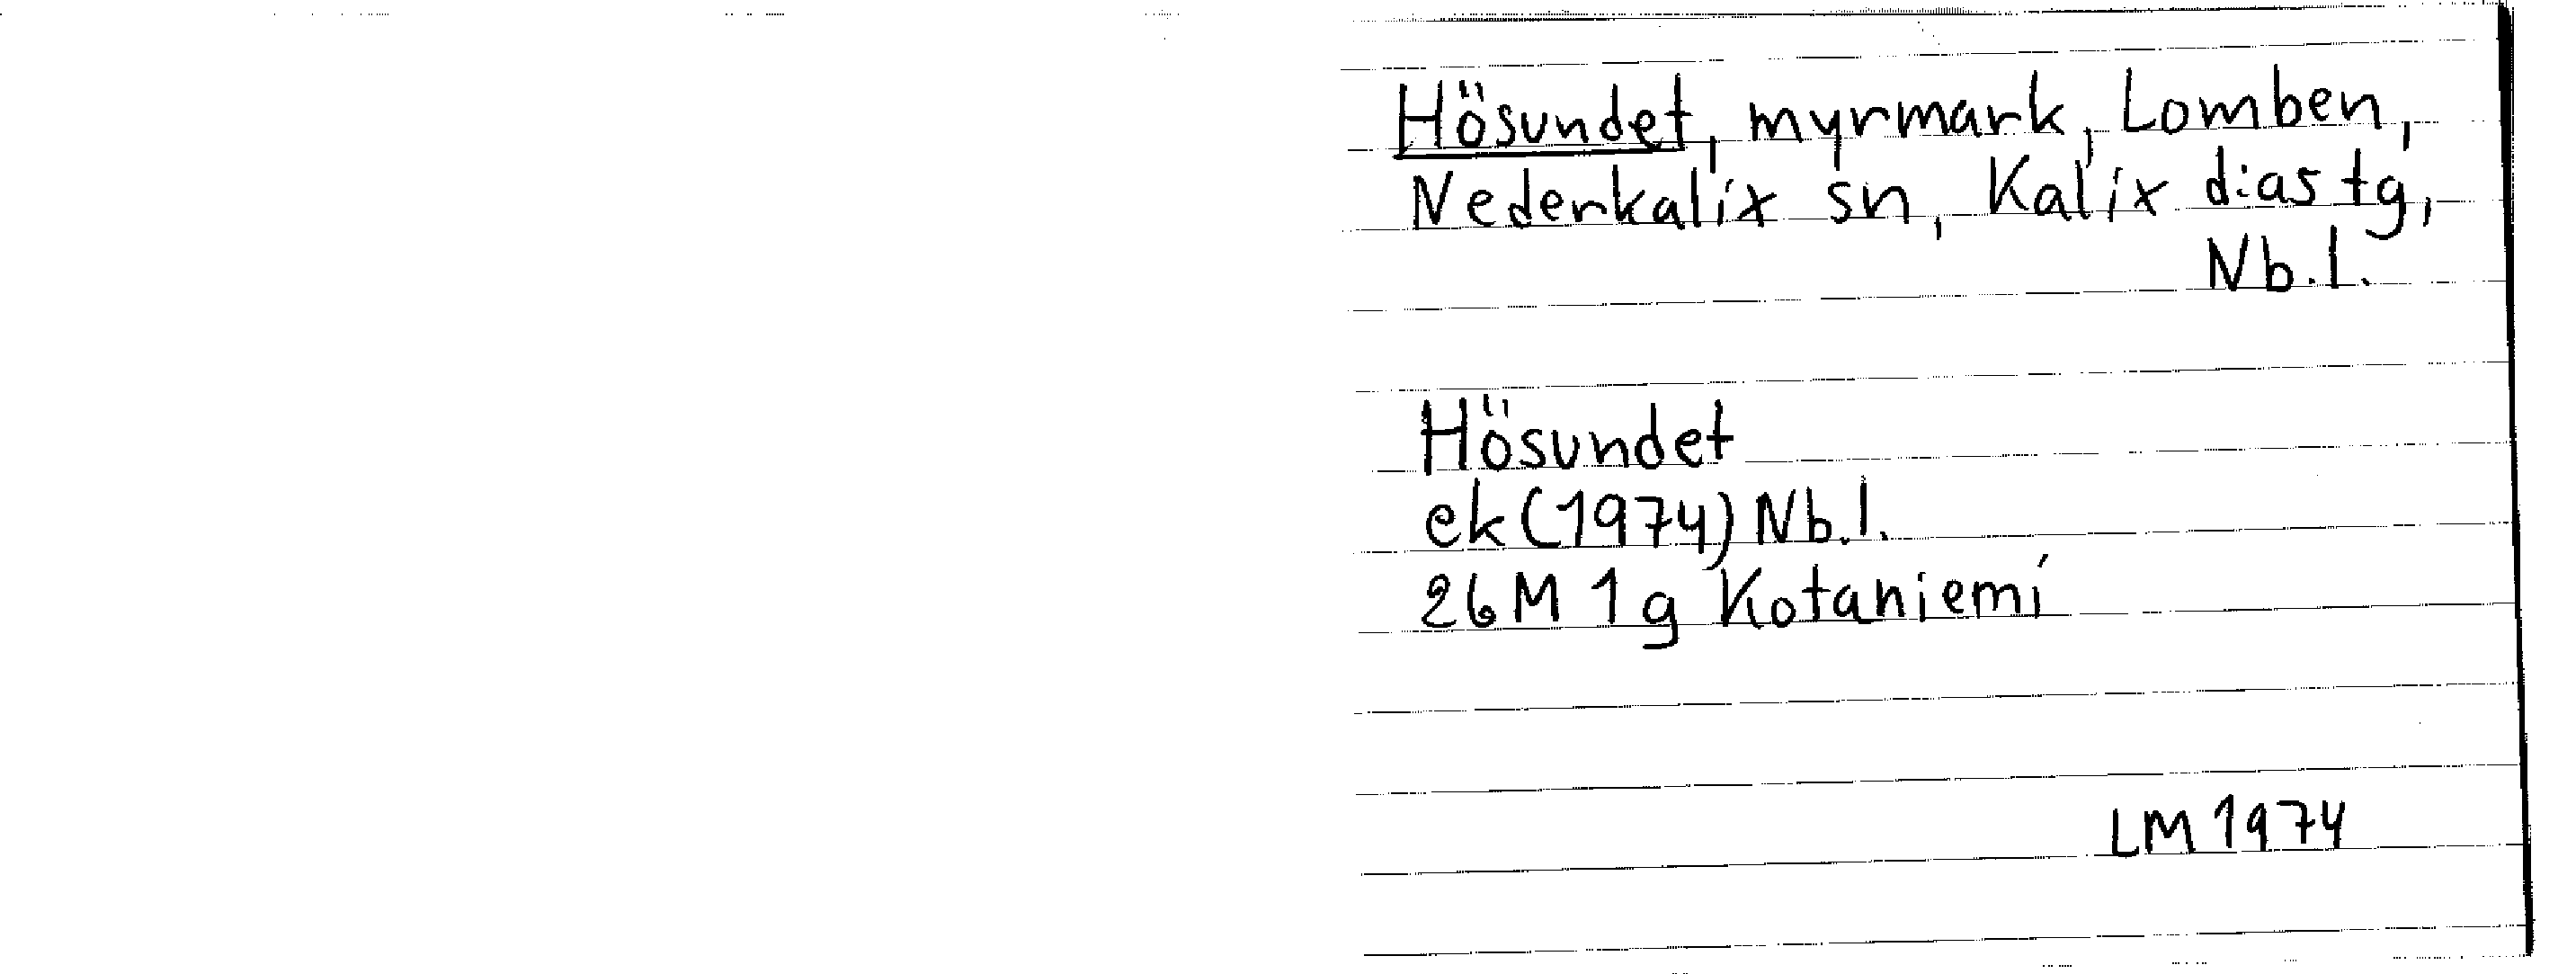 Hösundet, myrmark, Lomben,
Nederkalix sn, Kalix d:as tg,
Nb.l.
Hösundet
ek (1974) Nb.l.
26M 1g Kotaniemi
LM 1974